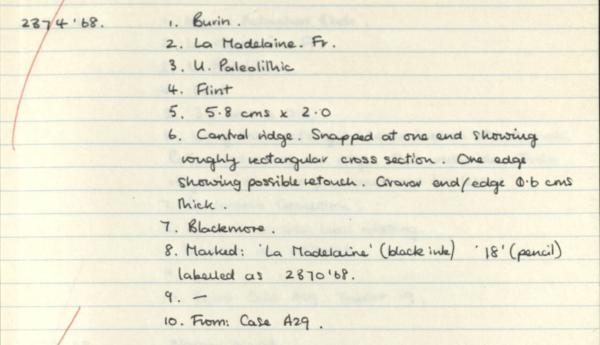 2374'68. 1. Burin.
2. La Madelaine. Fr.
3. U. Paleolithic
4. Flint
5. 5.8 cms x 2.0
6. Central ridge. Snapped at one end showing
roughly rectangular cross section. One edge
showing possible retouch. Graver end/edge 0.6 cms
thick
7. Blackmore.
8. Marked: 'La Madelaine' (black ink) '18' (pencil)
labelled as 2370'68.
9. —
10. From: Case A29.